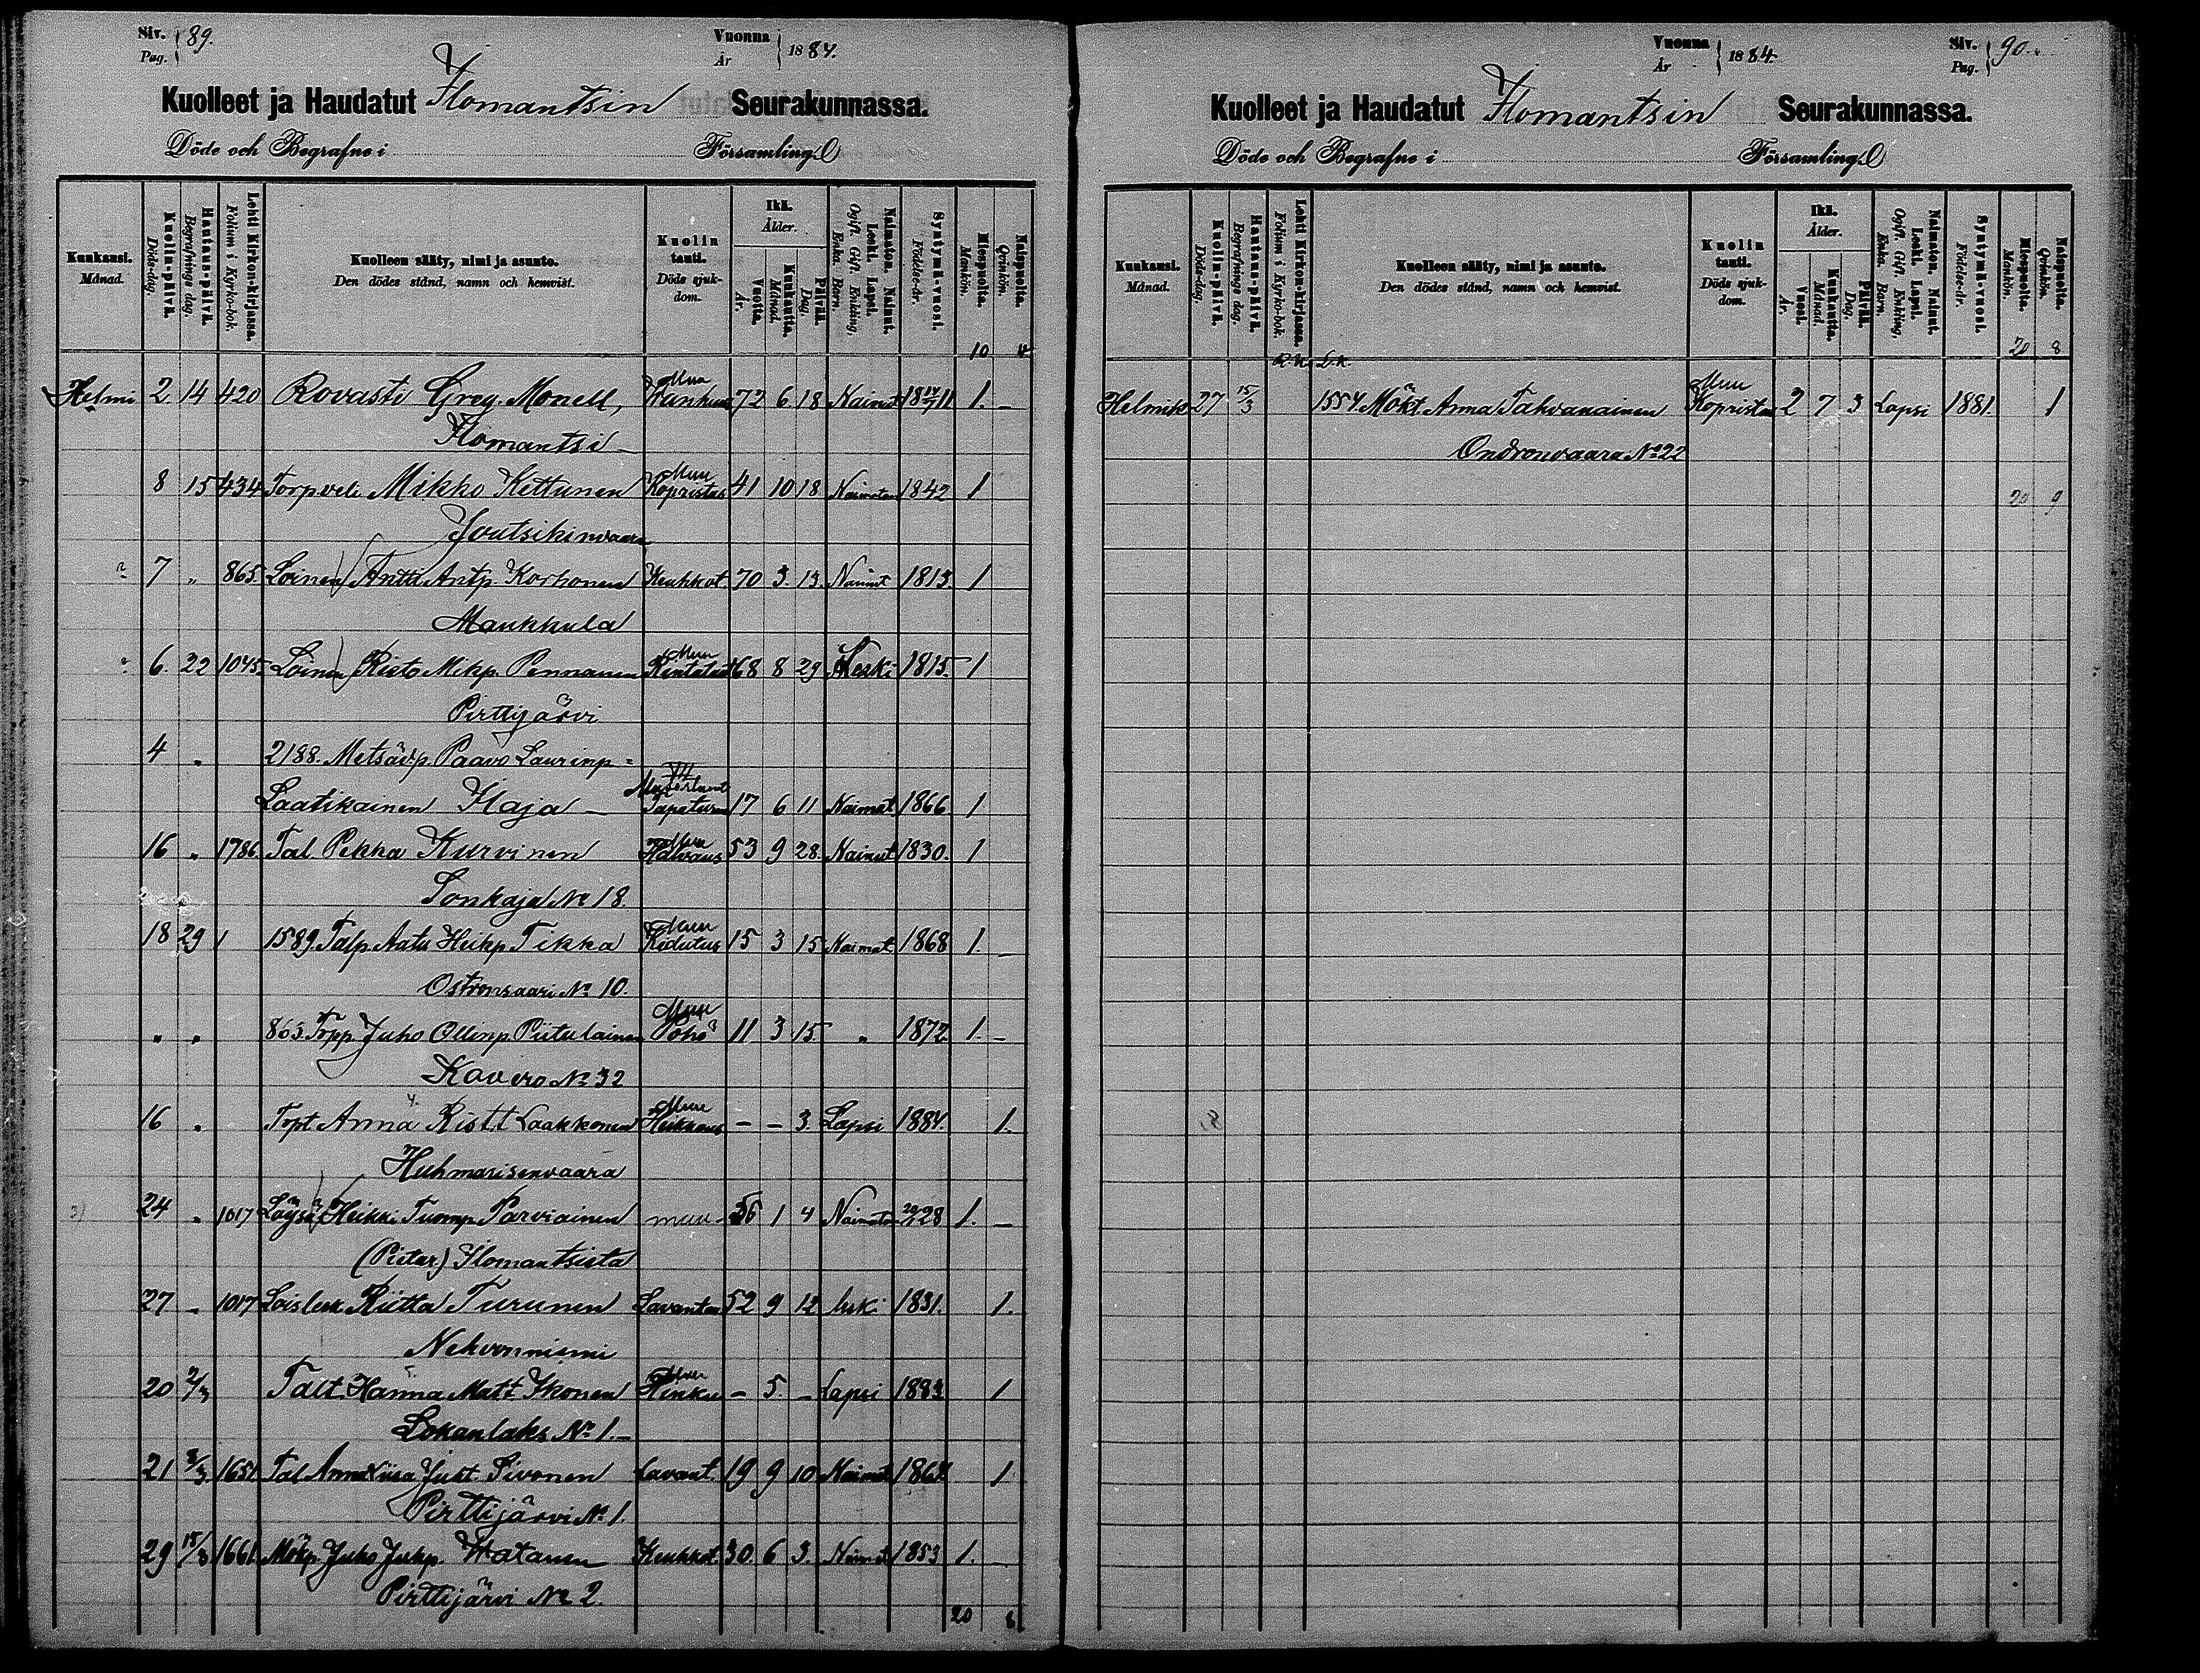 Siv. Pag. 89.
Vuonna År 1884.
Kuolleet ja Haudatut Ilomantsin Seurakunnassa.
Döde och Begrafne i Församling.
Kuukausi. Månad.
Kuolin-päivä. Döds-dag.
Hautaus-päivä. Begrafnings dag.
Lehti Kirkon-kirjassa. Folium i Kyrko-bok.
Kuolleen sääty, nimi ja asunto. Den dödes stånd, namn och hemvist.
Kuolin tauti. Döds sjuk-dom.
Ikä. Ålder.
Vuotta. År.
Kuukautta. Månad.
Päivää. Dag.
Naimaton. Nainut. Leski. Lapsi. Ogift. Gift. Enkling. Enka. Barn.
Syntymä-vuosi. Födelse-år.
Miespuolta. Mankön.
Naispuolta. Qvinkön.
10
Helmi 2 14 420 Rovasti Greg. Monell, Muu 72 6 18 Nainut 1811 1. -
Ilomantsi
8 15 434 Torpveli Mikko Kettunen Muu Kopristus 41 10 18 Naimaton 1842 1
Joutsikinvaara
7 " 865 Loinen Antti Antp. Korhonen Keuhkot. 70 3. 13. Nainut 1813. 1
Maukkula
6. 22 1045. Loinen Risto Mikp. Pennanen Muu 68 8 29 Leski 1815. 1
Pirttijärvi
4 " 2188. Metsäv.p. Paavo Laurinp.
Laatikainen Ilaja Tapaturm 17 6 11 Naimat. 1866 1
16 " 1786. Tal. Pekka Kurvinen Muu Halvaus 53 9 28. Nainut 1830. 1
Sonkaja No 18.
18 29 1 1589. Talp. Aatu Heikp. Tikka Muu 15 3 15 Naimat. 1868 1. -
Ostronsaari No 10.
" " 865. Torp.p. Juho Ollinp. Piitulainen Muu Pöhö 11 3 15. " 1872. 1. -
Kavero No 32
16 " Torpt. Anna Rist.t. Laakkonen Muu Heikkous - - 3. Lapsi 1884. 1.
Huhmarisenvaara
24 " 1017 Löysä Heikki Tuomp. Parviainen muu 56 1 4 Naimaton 28 1. -
(Pietar.) Ilomantsista
27 - 1017 Loislesk. Riitta Turunen Lavantau 52 9 12 leski 1831. 1.
Nehvonniemi
20 2/3 Talt. Hanna Matt. Ikonen Muu Hinku - 5. - Lapsi 1883 1
Lokanlaks No 1.
21 2/3 1651. Tal. Anna Liisa Juht. Sivonen Lavant. 19 9 10 Naimat 1864. 1
Pirttijärvi No 1.
29 15/3 1661. Mökp. Juho Juhp. Watanen Keuhkot. 30. 6 3. Nainut 1853 1.
Pirttijärvi No 2.
20 8
Vuonna År 1884.
Siv. Pag. 90.
Kuolleet ja Haudatut Ilomantsin Seurakunnassa.
Döde och Begrafne i Församling.
Kuukausi. Månad.
Kuolin-päivä. Döds-dag.
Hautaus-päivä. Begrafnings dag.
Lehti Kirkon-kirjassa. Folium i Kyrko-bok.
Kuolleen sääty, nimi ja asunto. Den dödes stånd, namn och hemvist.
Kuolin tauti. Döds sjuk-dom.
Ikä. Ålder.
Vuosi. År.
Kuukautta. Månad.
Päivää. Dag.
Naimaton. Nainut. Leski. Lapsi. Ogift. Gift. Enkling, Enka. Barn.
Syntymä-vuosi. Födelse-år.
Miespuolta. Mankön.
Naispuolta. Qvinkön.
R.K. L.K. 20 8
Helmik 27 15/3 1554 Mökt. Anna Tahvanainen Muu Kopristus 2 7 3 Lapsi 1881. 1
Ondronvaara No 22
20 9